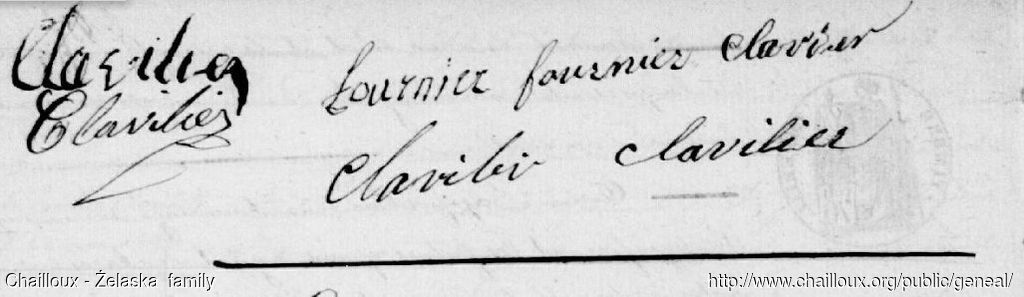 Clavilier fournier fournier Clavier
Clavilier Clavilir clavilier
Chailloux - Żelaska family http://www.chailloux.org/public/geneal/